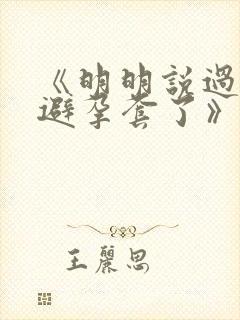 《明明説過
避孕套了》
王麗思